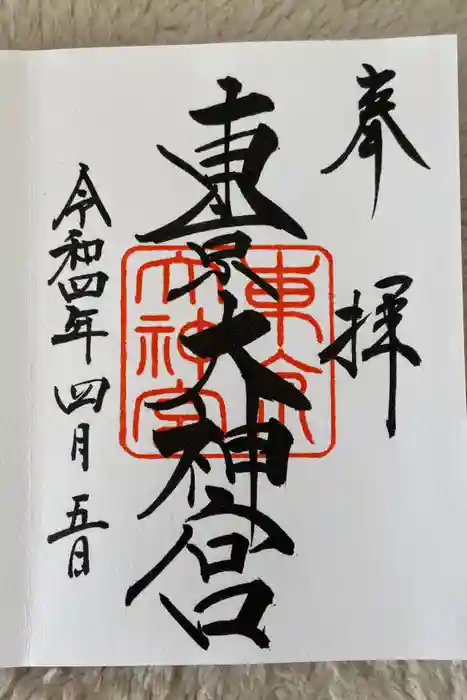 奉拝
東京大神宮
東京大神宮
令和四年四月五日